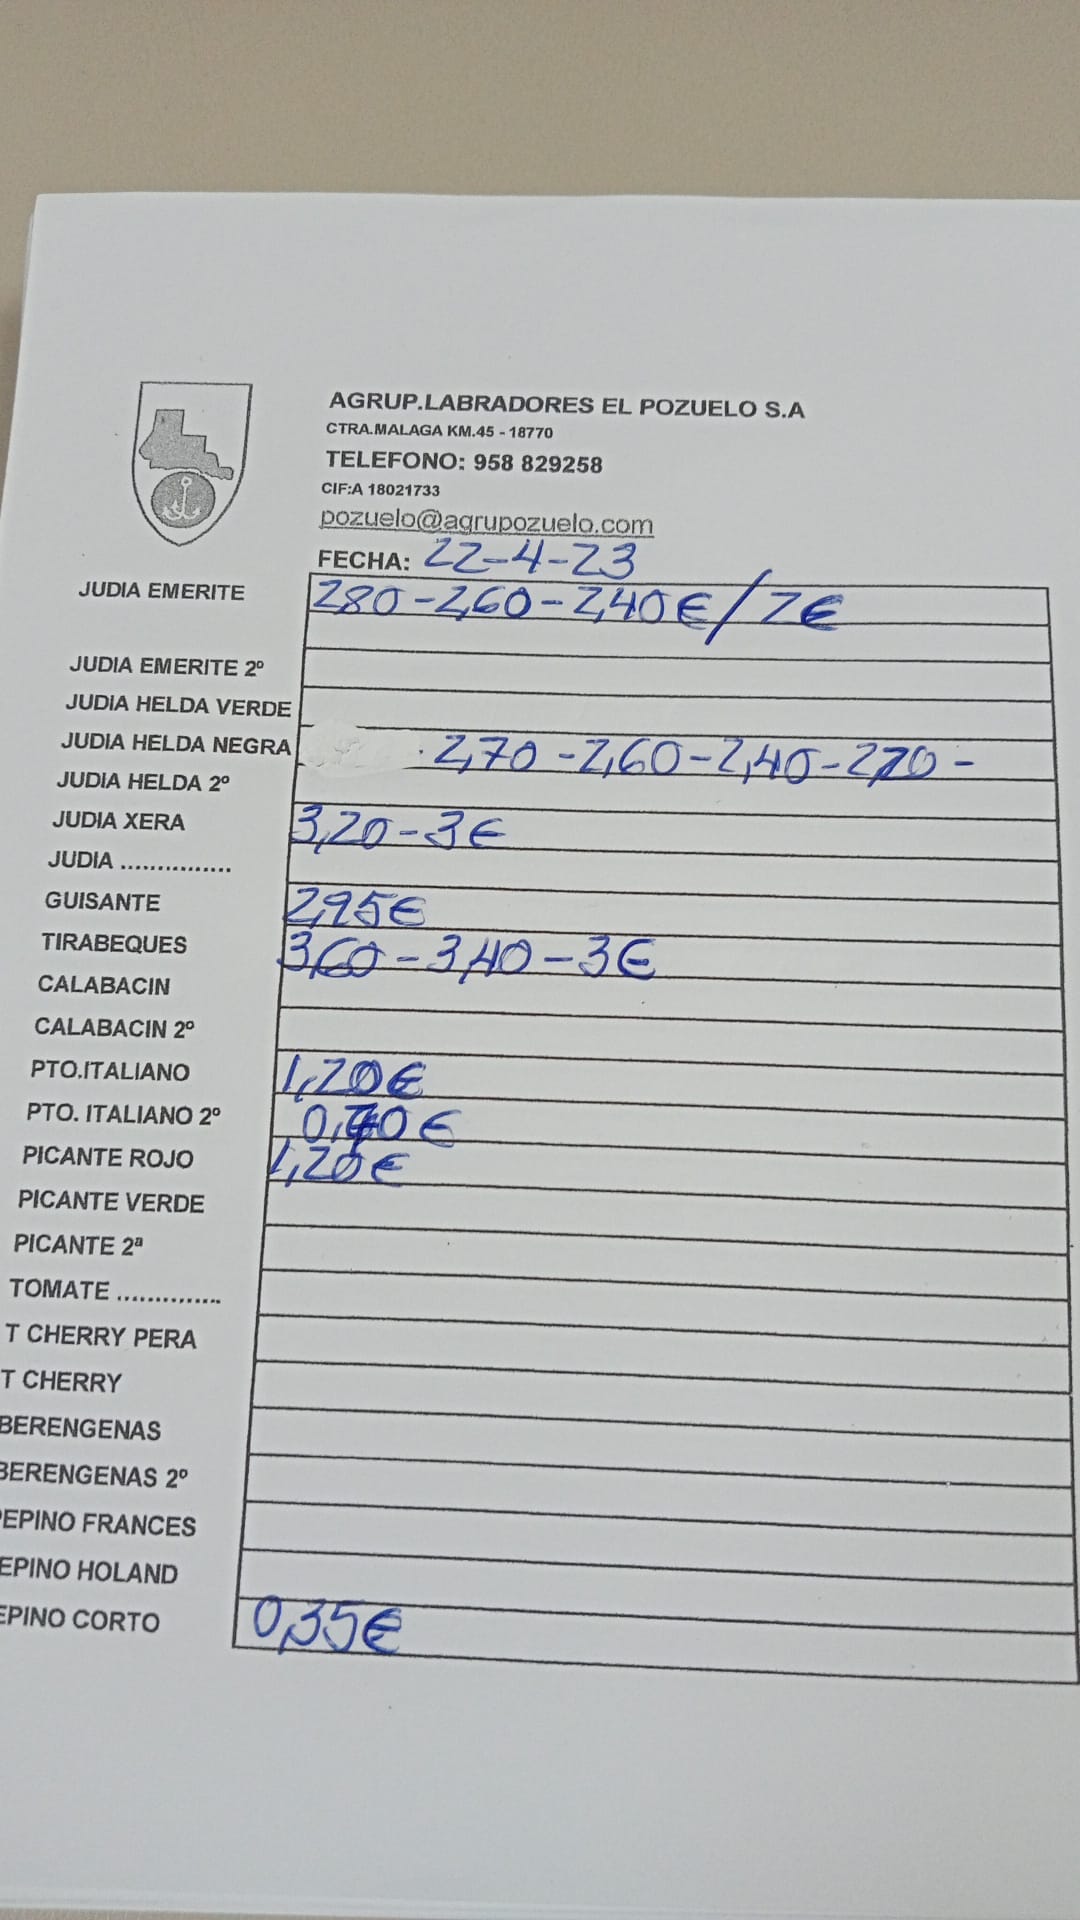 AGRUP.LABRADORES EL POZUELO S.A
CTRA.MALAGA KM.45 - 18770
TELEFONO: 958 829258
CIF:A 18021733
pozuelo@agrupozuelo.com
FECHA: 22-4-23
JUDIA EMERITE 2,80-2,60-2,40€/2€
JUDIA EMERITE 2º
JUDIA HELDA VERDE
JUDIA HELDA NEGRA 2,70-2,60-2,40-2,20-
JUDIA HELDA 2º
JUDIA XERA 3,20-3€
JUDIA ...............
GUISANTE 2,95€
TIRABEQUES 3,60-3,40-3€
CALABACIN
CALABACIN 2º
PTO.ITALIANO 1,20€
PTO. ITALIANO 2º
PICANTE ROJO 1,20€
PICANTE VERDE
PICANTE 2ª
TOMATE ..............
T CHERRY PERA
T CHERRY
BERENGENAS
BERENGENAS 2º
PEPINO FRANCES
EPINO HOLAND
EPINO CORTO 0,35€